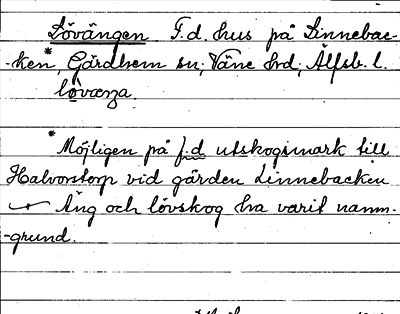 Lövängen F.d. hus på Linnebac-
-ken*, Gärdhem sn; Väne hrd, Älfsb. l.
lövæŋa.
*Möjligen på f.d utskogsmark till
Halvorstorp vid gården Linnebacken
Äng och lövskog ha varit namn-
-grund.